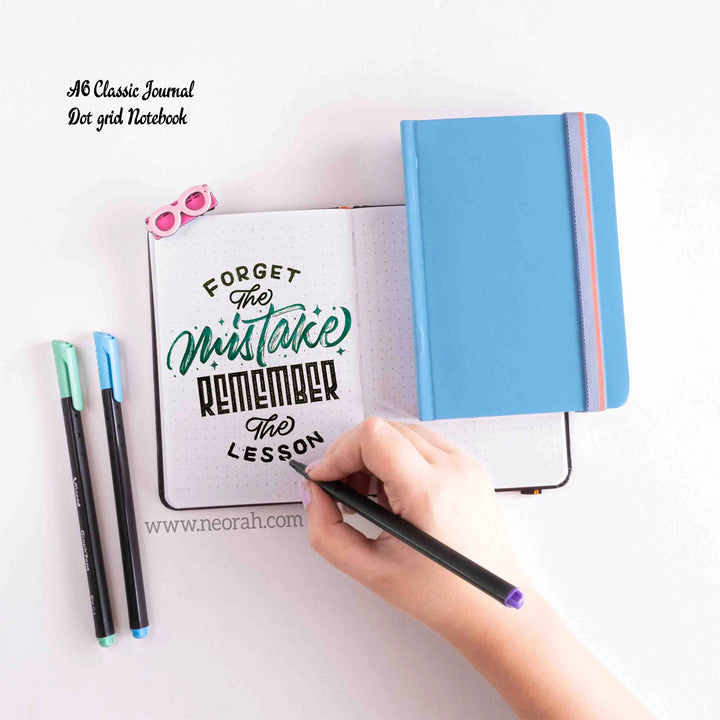 A6 Classic Journal
Dot grid Notebook
FORGET
The
mistake
REMEMBER
The
LESSON
www.neorah.com